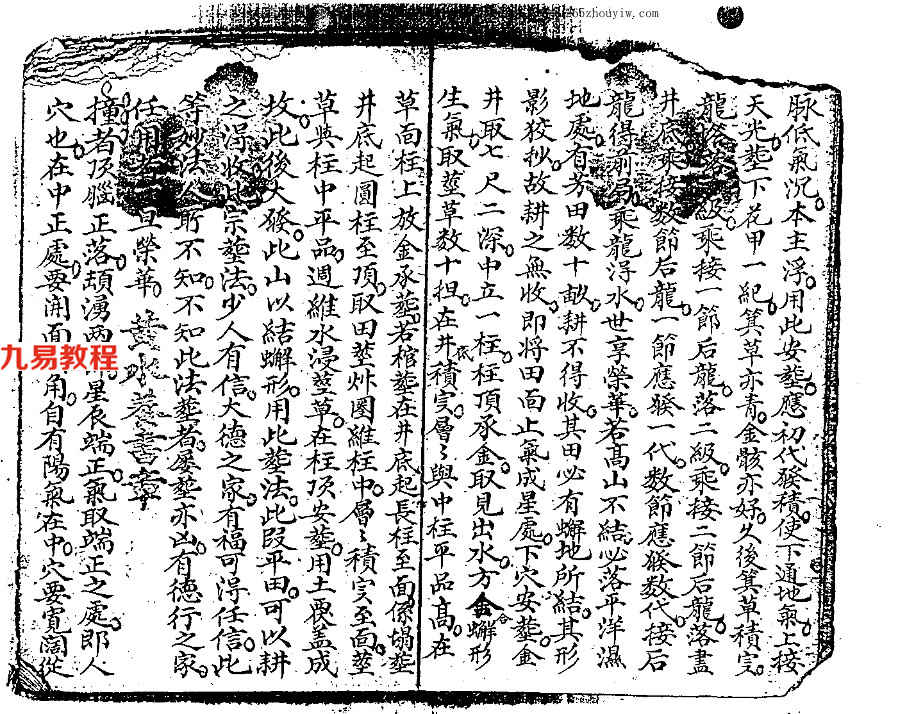 脉低氣沉本主浮用此安塟應初代發積使下通地氣上接
天光塟下花甲一紀箕草亦青金骸亦好久後箕草積实
龍格落一級乘接一節后龍落二級乘接二節后龍落盡
井底乘接数節后龍一節應發一代数節應發数代接后
龍得前局乘龍浔水世享榮華若髙山不結必落平洋濕
地處有芳田数十畝耕不得收其田必有蠏地所結其形
影狡抄故耕之無收即將田面止氣成星處下穴安塟金
井取七尺二深中立一柱柱頂承金取見出水方金蠏形
生氣取塟草数十担在井底積实層〻與中柱平品髙在
草面柱上放金承塟若棺塟在井底起長柱至面係塌塟
井底起圓柱至頂取田塟艸圈維柱中層〻積实至面塟
草與柱中平品週維水浸塟草在柱頂安塟用土衆盖成
坟此後大發此山以結蠏形用此塟法此段平田可以耕
之浔收此宗塟法少人有信大德之家有福可浔任信此
等妙法人所不知不知此法塟者屡塟亦凶有德行之家
任用 旦榮華
撞者頂腦正落頡湧两 星辰端正氣取端正之處即人
穴也在中正處要開面 角自有陽氣在中穴要寬闊從
九易教程
65zhouyiw.com